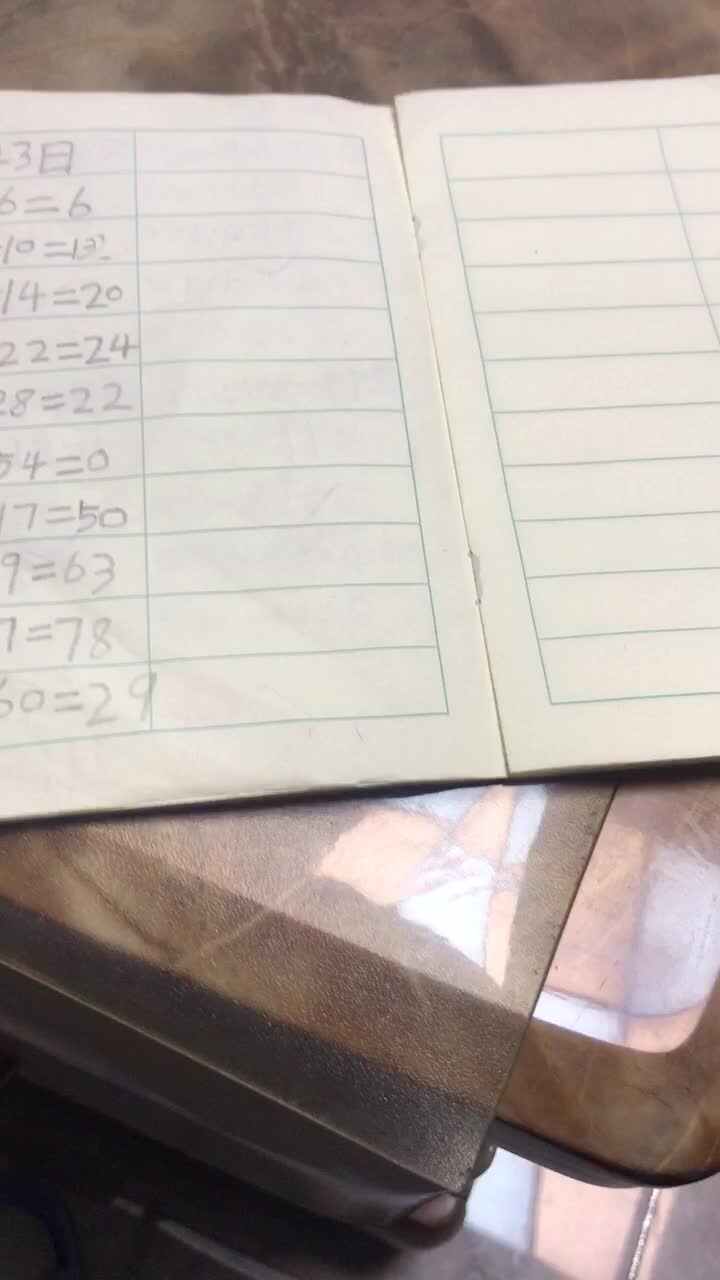 3日
6=6
10=13
14=20
22=24
28=22
54=0
17=50
9=63
7=78
60=29